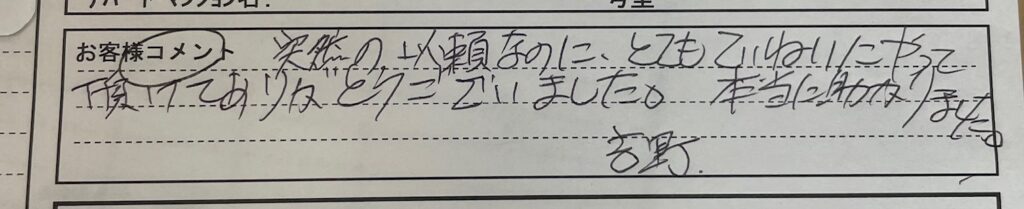 アパートマンション名: 号室
お客様コメント 突然の依頼なのに、とてもていねいにやって
頂けてありがとうございました。本当に助かりました。
吉野.